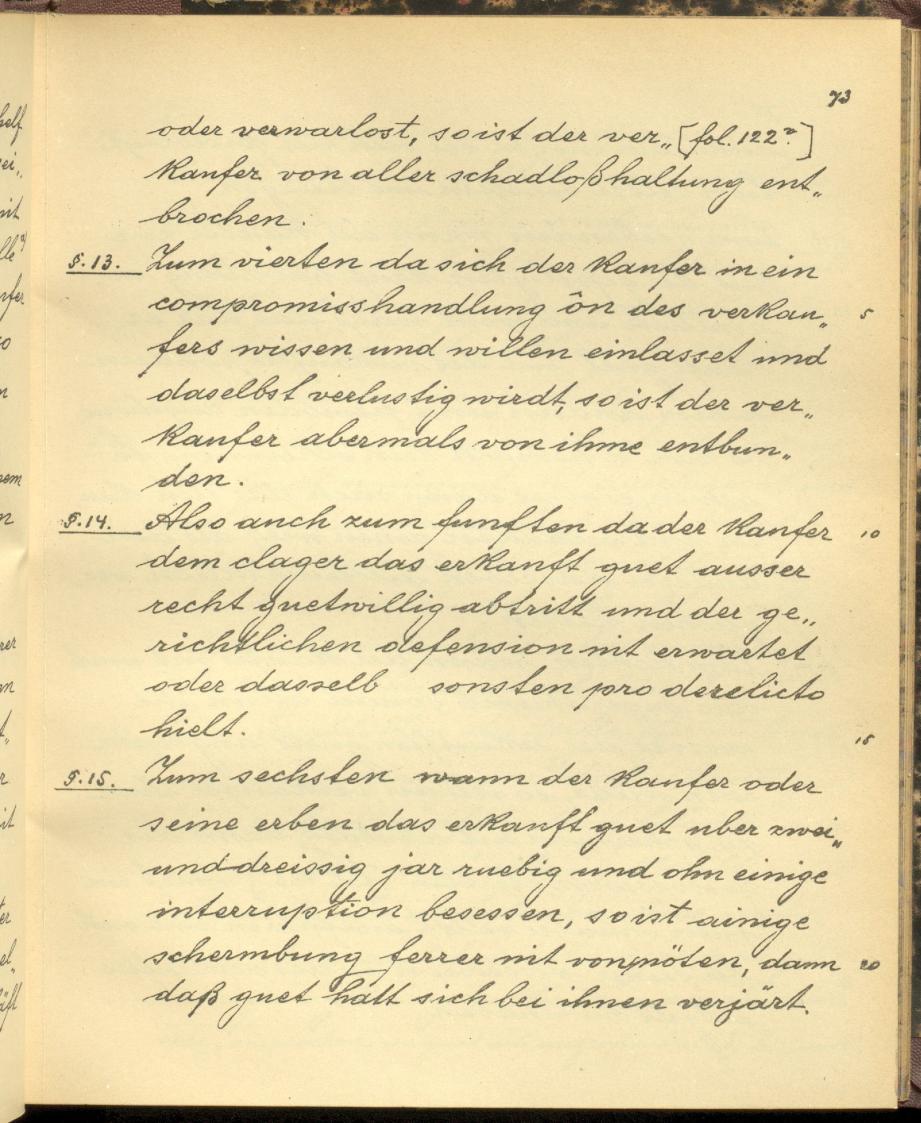 73
oder verwarlost, so ist der ver„ [fol. 122r.]
kaufer von aller schadloßhaltung ent„
brochen.
§. 13. Zum vierten da sich der kaufer in ein
compromisshandlung ôn des verkau„ 5
fers wissen und willen einlasset und
daselbst verlustig wirdt, so ist der ver„
kaufer abermals von ihme entbun„
den.
§. 14. Also auch zum funften da der kaufer 10
dem clager das erkauft guet ausser
recht guetwillig abtritt und der ge„
richtlichen defension nit erwartet
oder dasselb sonsten pro derelicto
hielt. 15
§. 15. Zum sechsten wann der kaufer oder
seine erben das erkauft guet uber zwei„
und dreissig jar ruebig und ohn einige
interruption besessen, so ist ainige
schermbung ferrer nit vonnöten, dann 20
daß guet hatt sich bei ihnen verjärt.